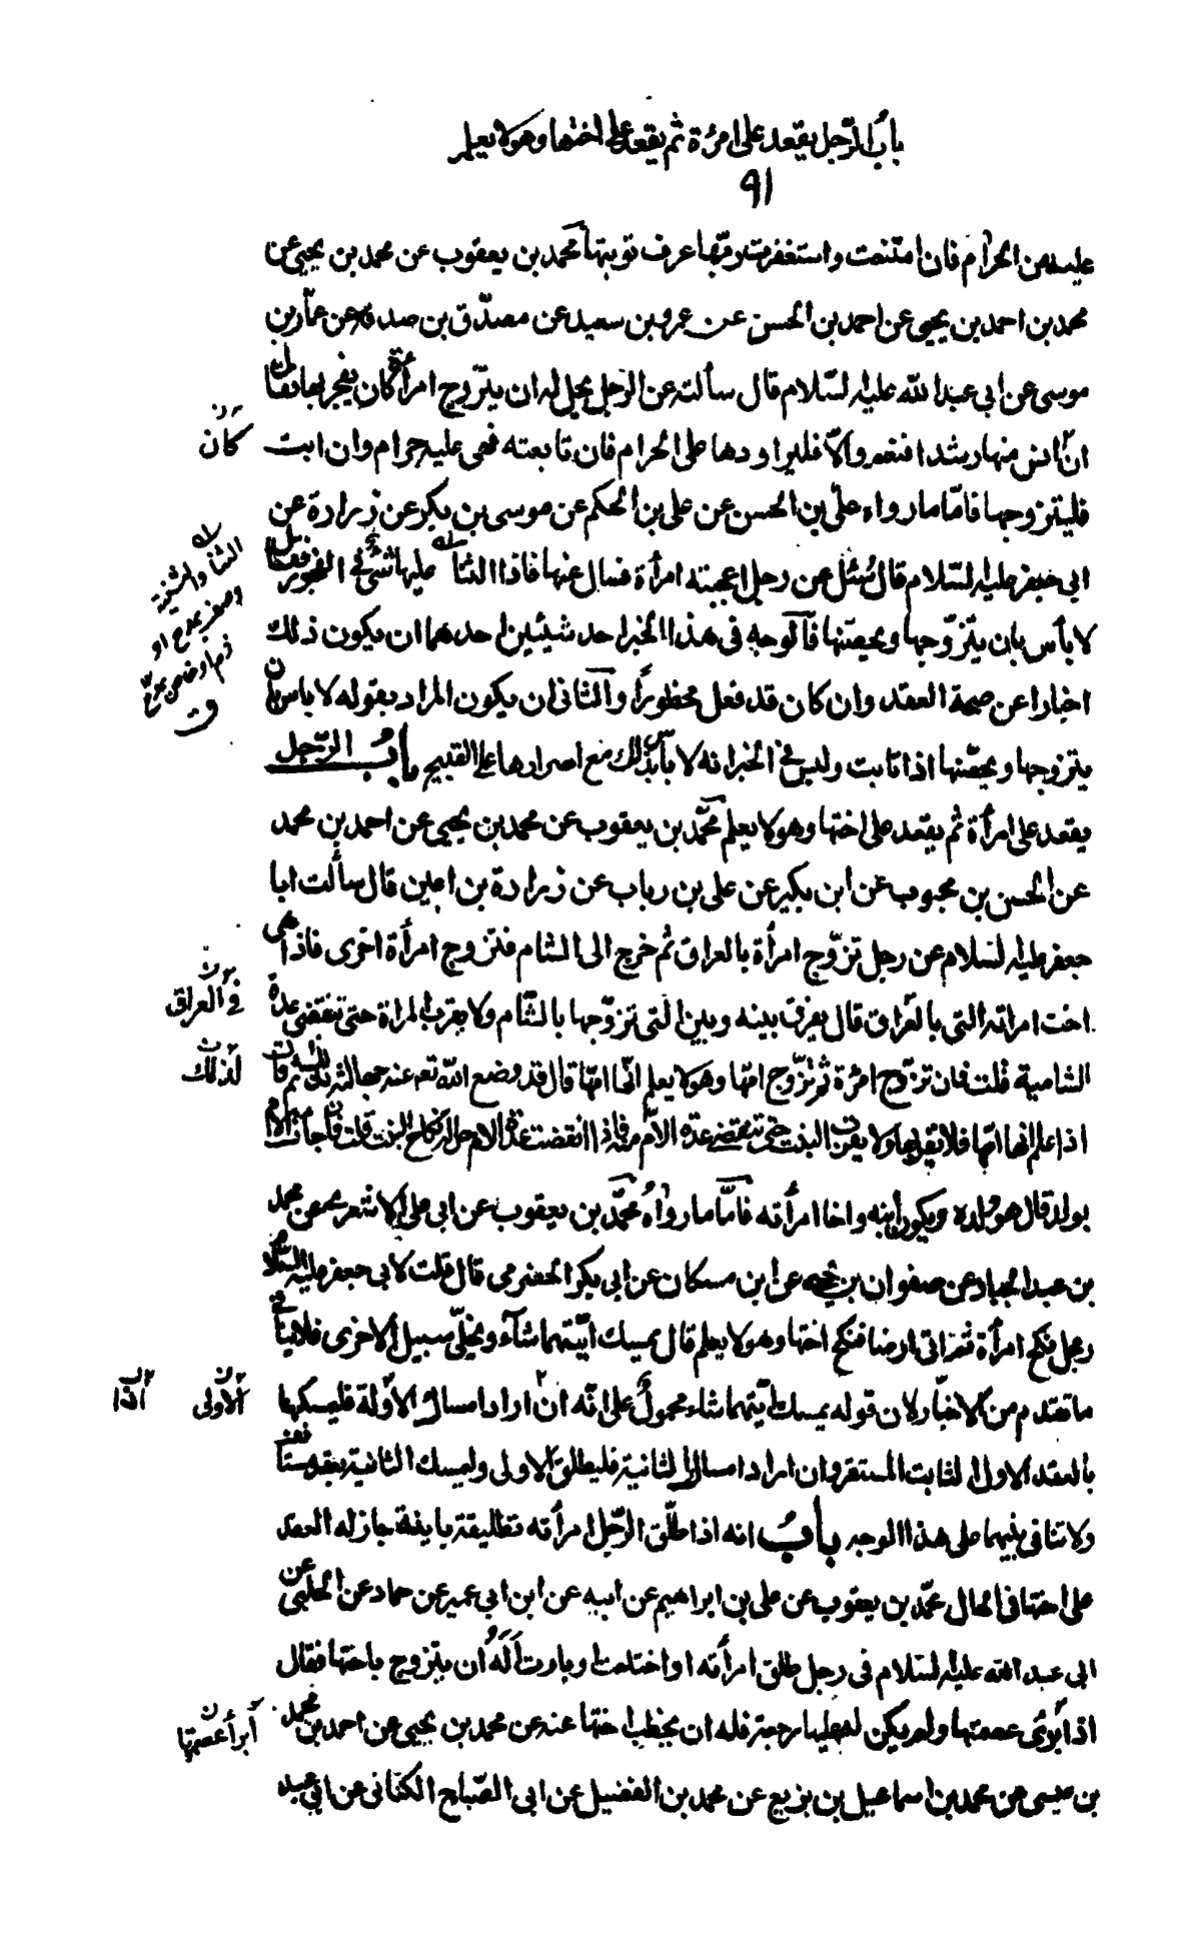 باب الرّجل يقعد على امرئة ثم يقعد على اختها وهو لا يعلم
٩١
عليه من الحرام فان امتنعت واستغفرت ربّها عرف توبتها محمد بن يعقوب عن محمد بن يحيى عن
محمد بن احمد بن يحيى عن احمد بن الحسن عن عمرو بن سعيد عن مصدّق بن صدقة عن عمّار بن
موسى عن ابى عبد الله عليه السّلام قال سألته عن الرّجل يحل له ان يتزوج امرأة كان يفجر بها فقال
ان انس منها رشدا فنعم والاّ فليراودها على الحرام فان تابعته فهى عليه حرام وان ابت
كان
فليتزوجها فامّا ما رواه علىّ بن الحسن عن على بن الحكم عن موسى بن بكر عن زرارة عن
ابى جعفر عليه السّلام قال سُئل عن رجل اعجبته امرأة فسال عنها فاذا الثنا عليها شئ فى الفجور فقال
لا بأس بان يتزوّجها ويحصنها فالوجه فى هذا الخبر احد شيئين احدهما ان يكون ذلك
اخبارا عن صحة العقد وان كان قد فعل محظوراً والثانى ان يكون المراد بقوله لا باس بان
يتزوجها ويحصّنها اذا تابت وليس فى الخبر انه لا بأس بذلك مع اصرارها على القبيح باب الرّجل
يقعد على امرأة ثم يقعد على اختها وهو لا يعلم محمّد بن يعقوب عن محمد بن يحيى عن احمد بن محمد
عن الحسن بن محبوب عن ابن بكير عن على بن رباب عن زرارة بن اعين قال سألت ابا
جعفر عليه السلام عن رجل تزوّج امرأة بالعراق ثم خرج الى الشام فتزوج امرأة اخرى فاذا هى
اخت امراته التى بالعراق قال يفرق بينه وبين التى تزوّجها بالشّام ولا يقرب المراة حتى تنقضى عدة
فى العراق
الشامية قلت فان تزوّج امرئة ثم تزوّج امها وهو لا يعلم انّها امّها قال قد وضع الله تعه عنه جهالته بذلك ثم قال
لذلك
اذا علم انها امّها فلا يقربها ولا يقرب البنت حتى تنقضى عدة الامّ منه فاذا انقضت عدة الام حل له نكاح البنت قلت فان جاءت الام
بولد قال هو ولده ويكون ابنه واخا امرأته فأمّا ما رواه محمّد بن يعقوب عن ابى على الاشعرى عن محمد
بن عبد الجبار عن صفوان بن يحيى عن ابن مسكان عن ابى بكر الحضرمى قال قلت لابى جعفر عليه السّلام
رجل نكح امرأة ثم اتى ارضا فنكح اختها وهو لا يعلم قال يمسك ايّتهما شاء ويخلّى سبيل الاخرى فلا ينافى
ما تقدم من الاخبار لان قوله يمسك ايّتهما شاء محمولٌ على انّه ان اراد امساك الاولة فليمسكها
الاولى
اذا
بالعقد الاول الثابت المستقر وان اراد امساك الثانية فليطلق الاولى وليمسك الثانية بعقد مستأنف
ولا تنافى بينهما على هذا الوجه باب انه اذا طلّق الرّجل امرأته تطليقة باينة جاز له العقد
على اختها فى الحال محمّد بن يعقوب عن على بن ابراهيم عن ابيه عن ابن ابى عمير عن حماد عن الحلبى عن
ابى عبد الله عليه السّلام فى رجل طلق امرأته او اختلعت او بارت أَلَهُ ان يتزوج باختها فقال
اذا أبرئ عصمتها ولم يكن له عليها رجعة فله ان يخطب اختها عنه عن محمد بن يحيى عن احمد بن محمد
ابرأ عصمتها
بن عيسى عن محمد بن اسماعيل بن بزيع عن محمد بن الفضيل عن ابى الصّباح الكنانى عن ابى عبد